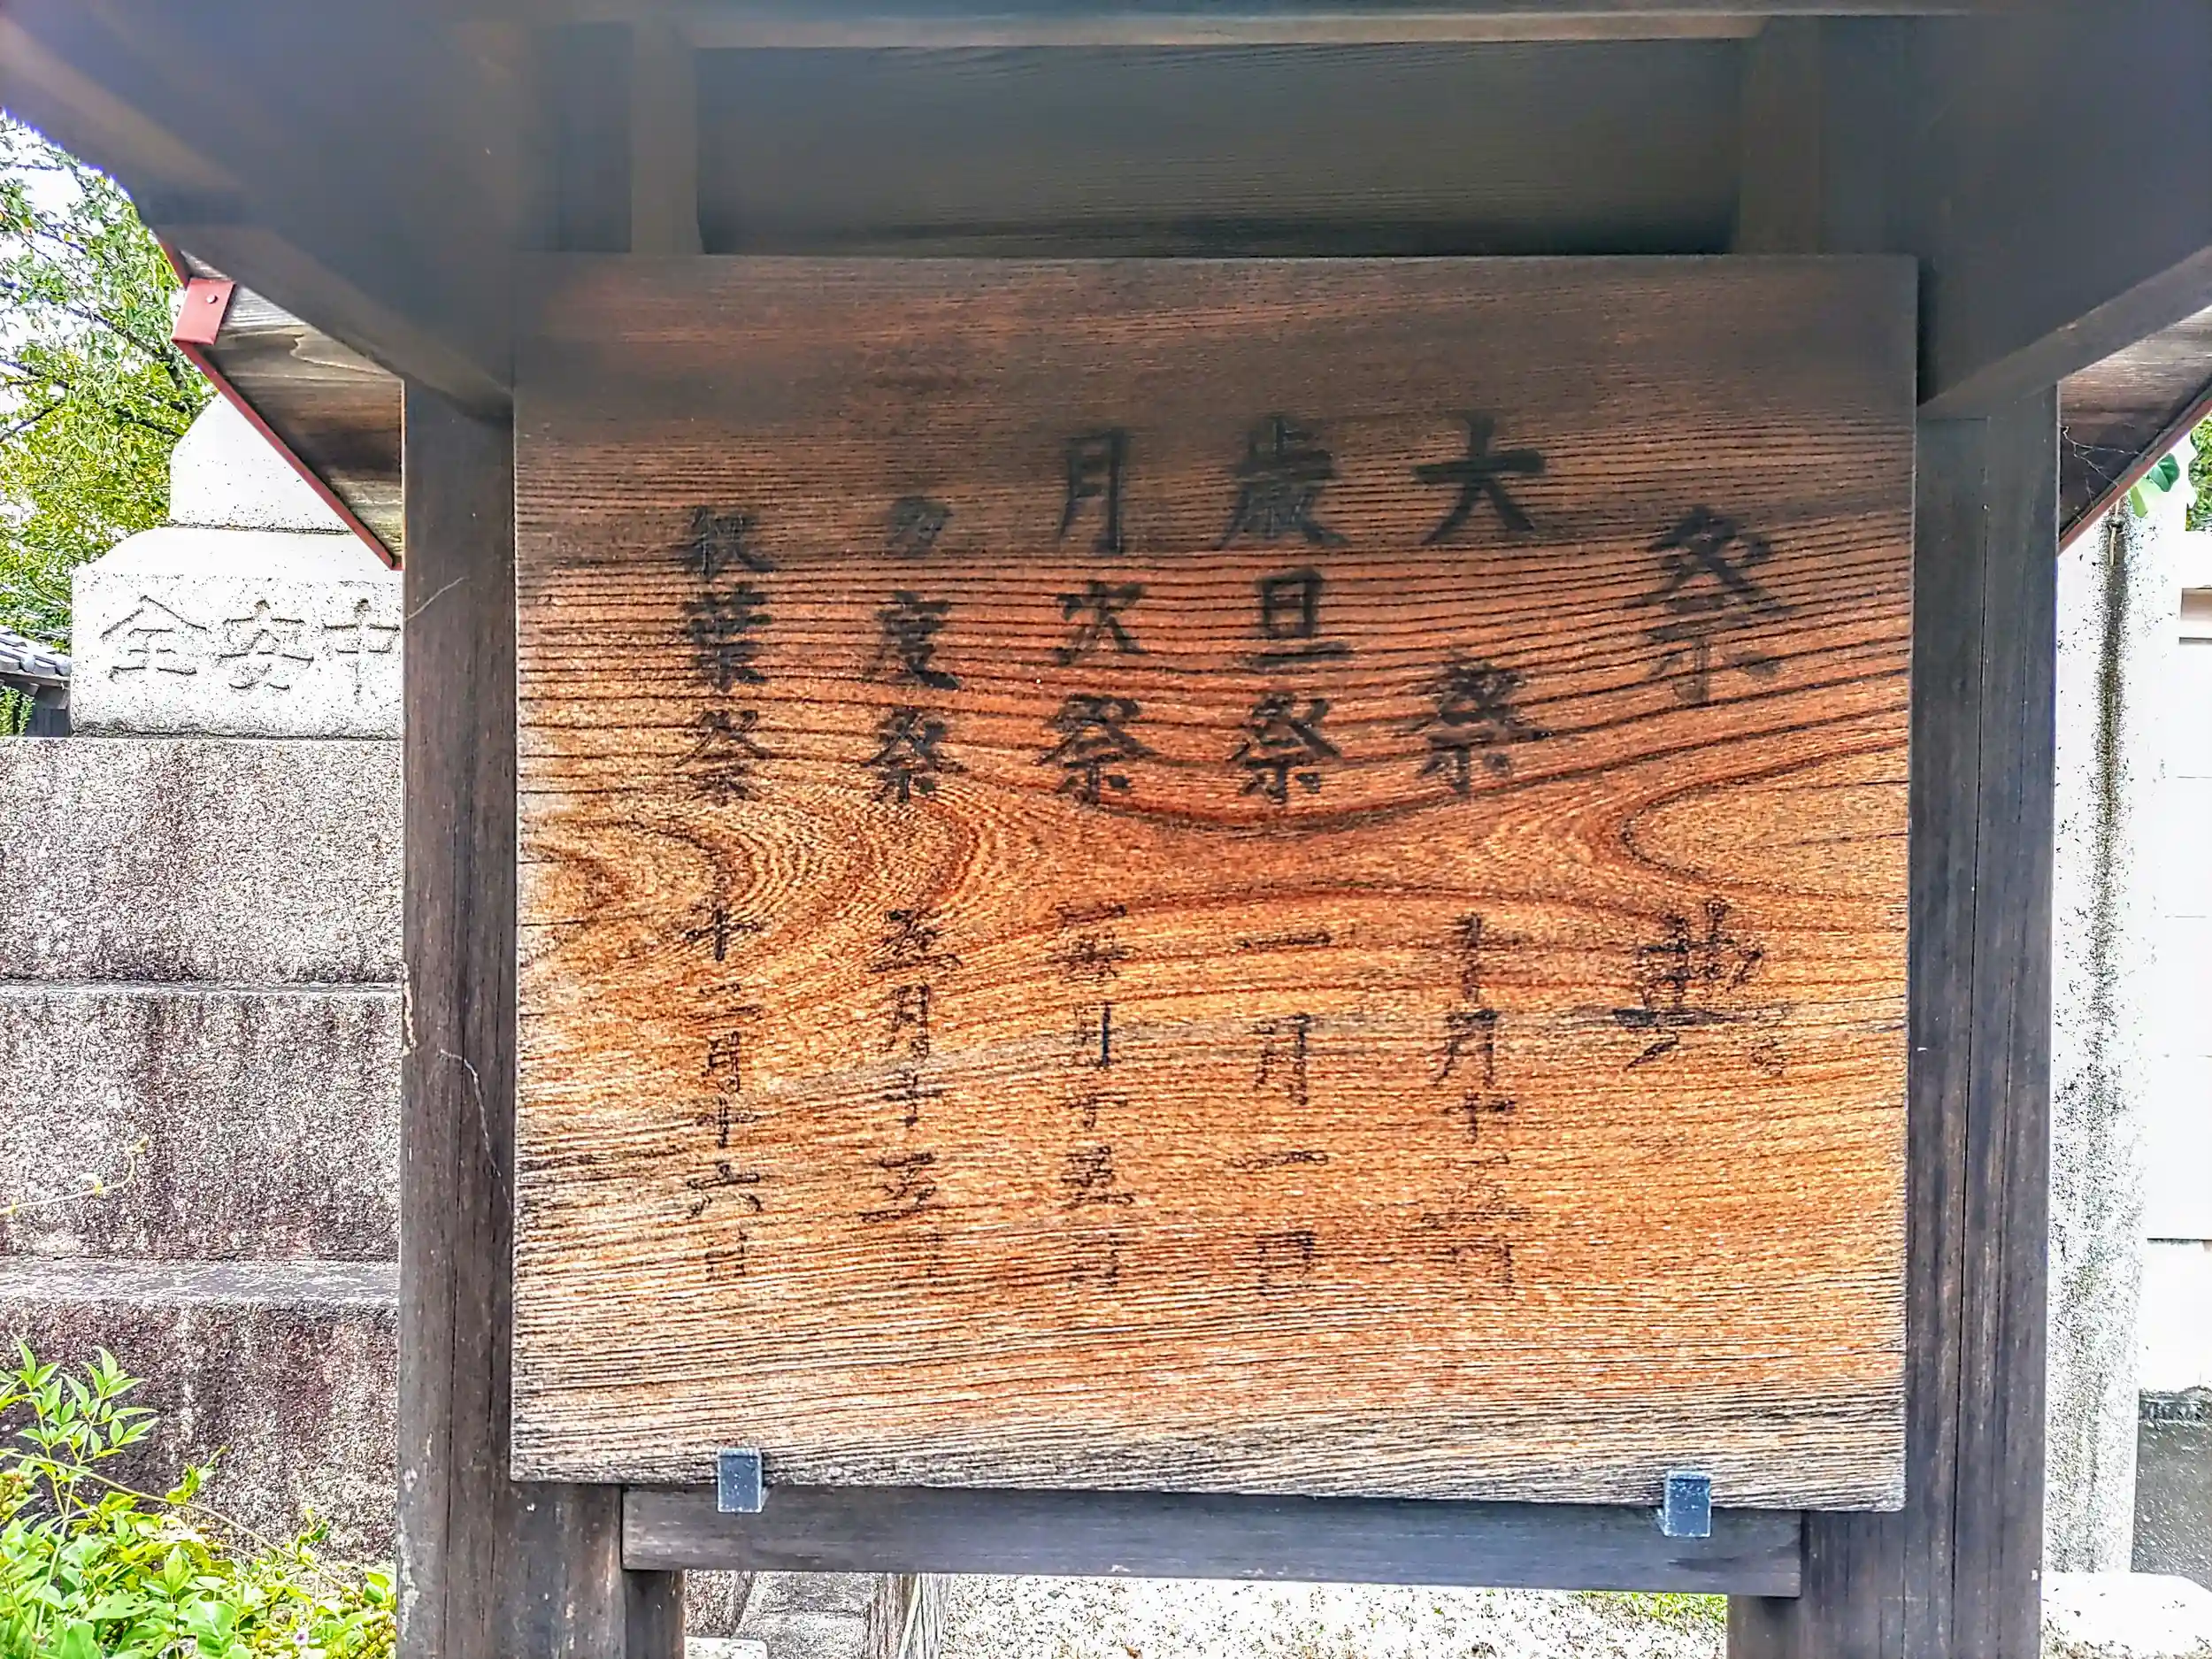 祭典
大祭 十月十
歳旦祭 一月一日
月次祭 毎月十五日
多度祭 五月十五日
秋葉祭 十二月十六日
中安全